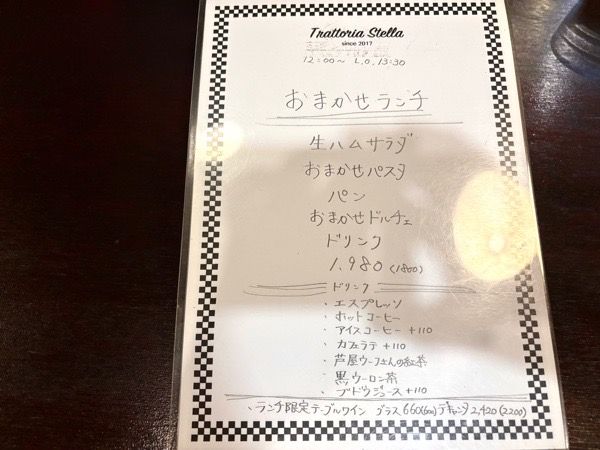 Trattoria Stella
since 2017
12:00〜 L.O.13:30
おまかせランチ
生ハムサラダ
おまかせパスタ
パン
おまかせドルチェ
ドリンク
1,980(1800)
ドリンク
・エスプレッソ
・ホットコーヒー
・アイスコーヒー +110
・カフェラテ +110
・芦屋ウーフさんの紅茶
・黒ウーロン茶
・ブドウジュース +110
・ランチ限定テーブルワイン グラス660(600)デキャンタ2,420(2200)